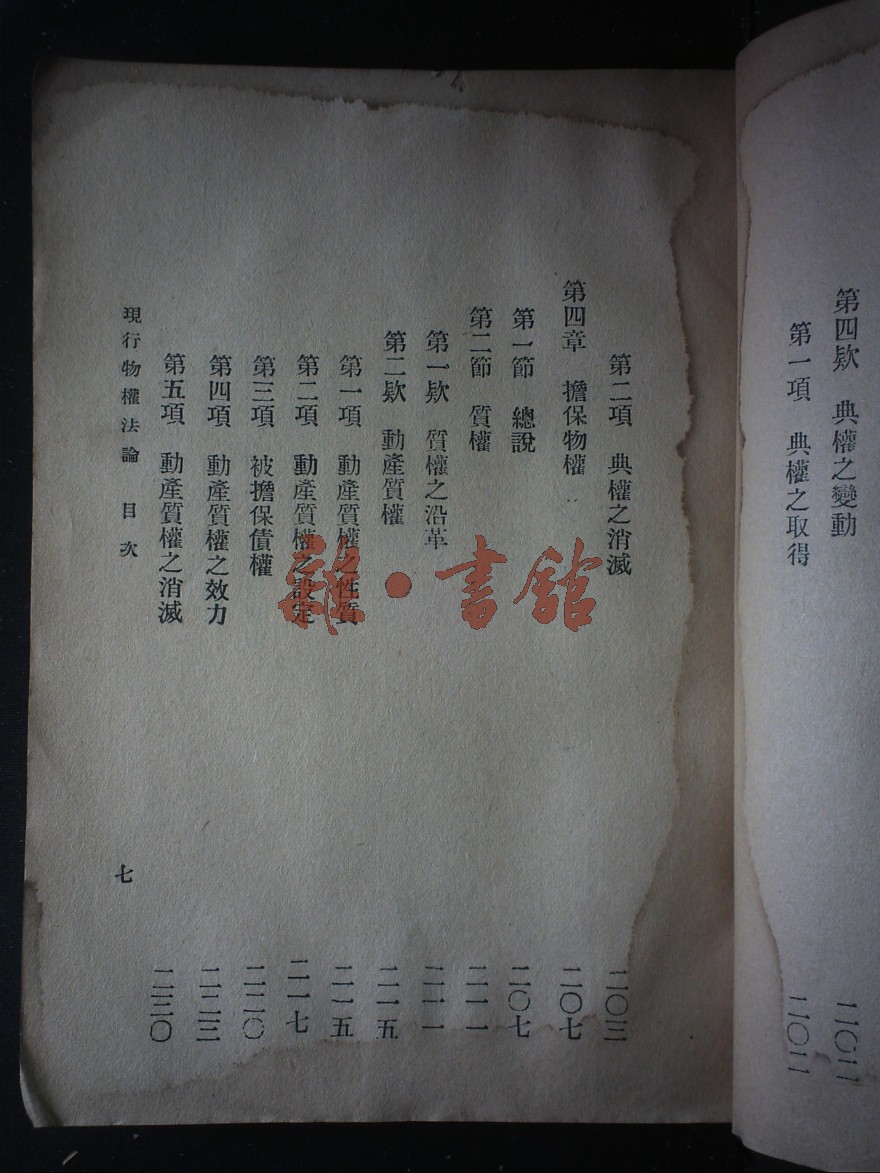 第四欵 典權之變動 二〇二
第一項 典權之取得 二〇二
第二項 典權之消滅 二〇三
第四章 擔保物權 二〇七
第一節 總說 二〇七
第二節 質權 二一一
第一欵 質權之沿革 二一一
第二欵 動產質權 二一五
第一項 動產質權之性質 二一五
第二項 動產質權之設定 二一七
第三項 被擔保債權 二二〇
第四項 動產質權之效力 二二三
第五項 動產質權之消滅 二三〇
現行物權法論 目次 七
雜·書館